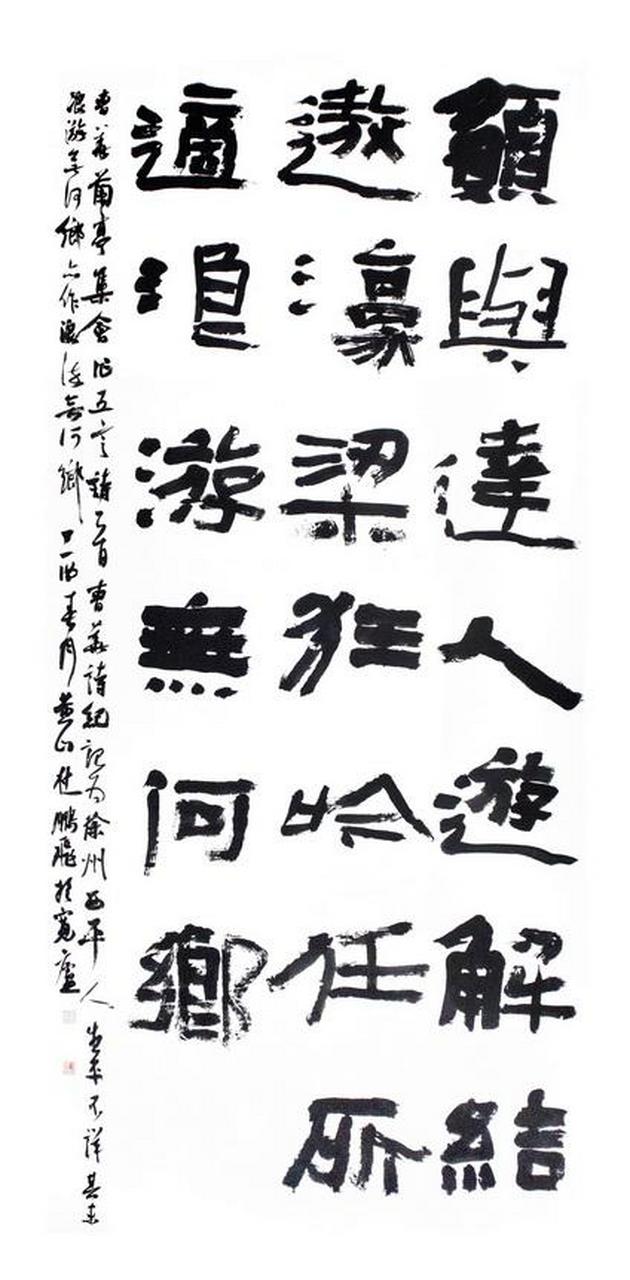 願與達人遊解結
遨濠梁狂吟任所
適浪游無何鄉
曹華蘭亭集會作五言詩一首曹華詩紀記為徐州西平人生卒不詳其末
浪游無何鄉亦作浪津無何鄉丁酉春月黄山杜鵬飛於寬廬